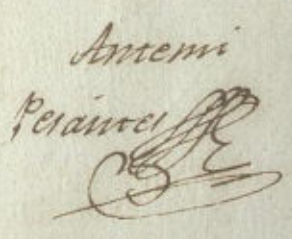 Antemi
Pesantes